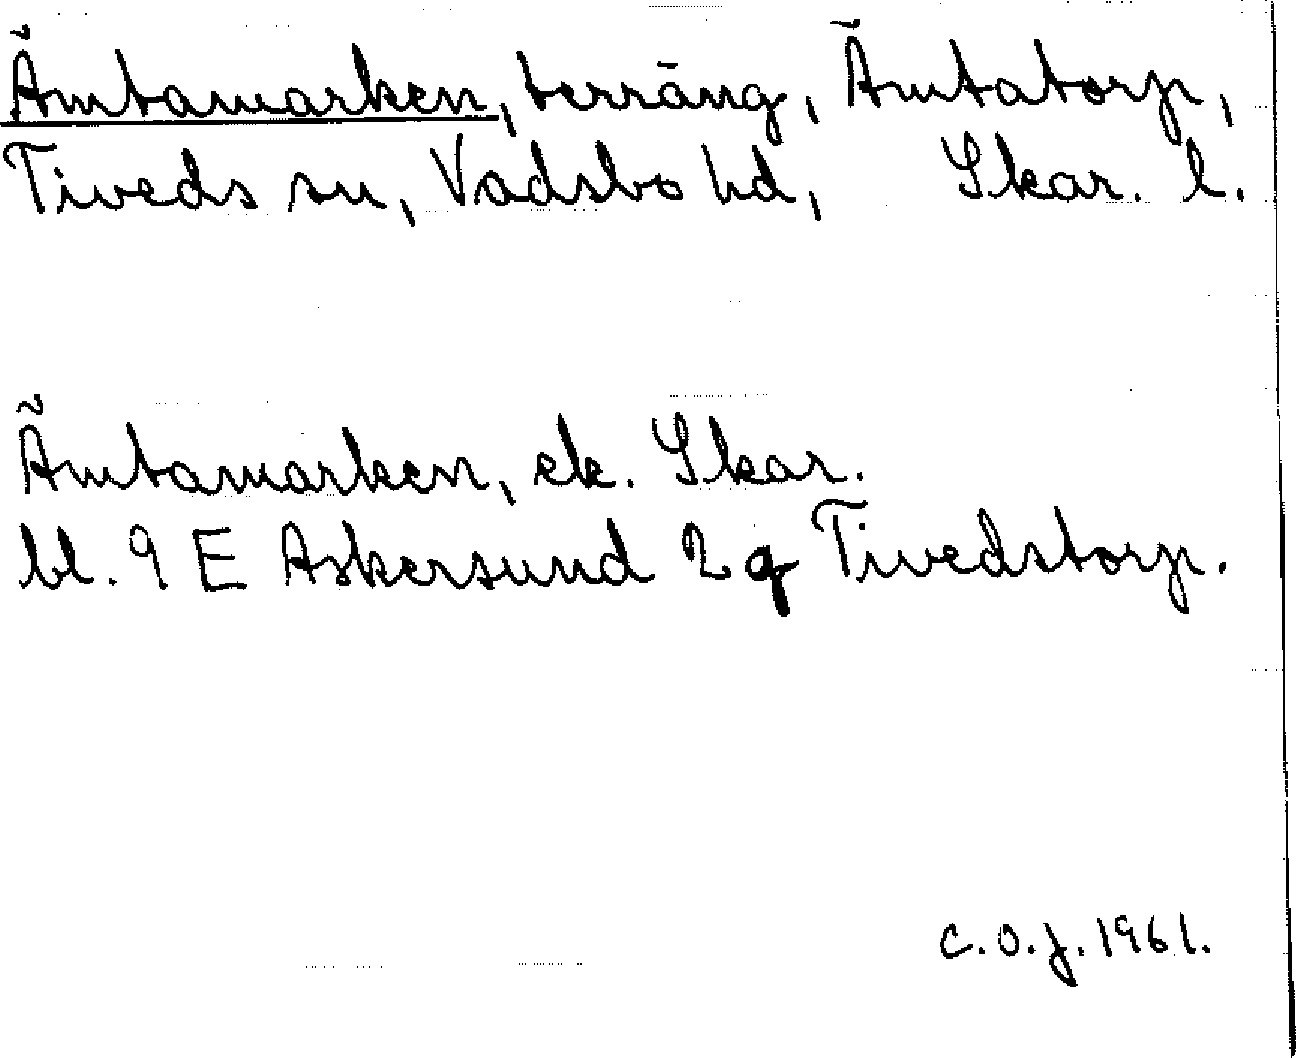 Ämtamarken, terräng, Ämtatorp,
Tiveds sn, Vadsbo hd, Skar. l.
Ämtamarken, ek. Skar.
bl. 9 E Askersund 2 q Tivedstorp.
C.O.J. 1961.